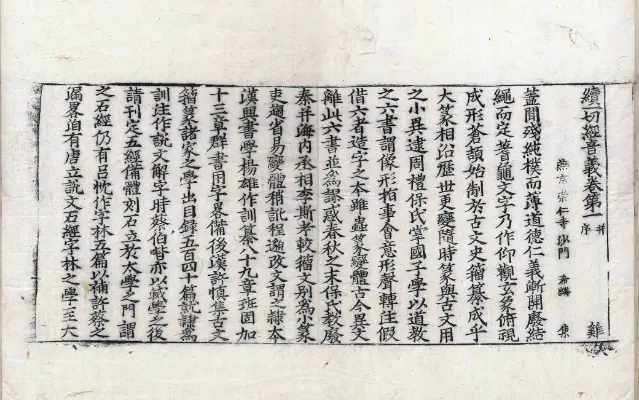 續一切經音義卷第一 并序 雞
燕京崇仁寺沙門 希麟 集
蓋聞殘純樸而薄道德仁義漸開廢結
繩而定蓍龜文字乃作仰觀玄象俯視
成形蒼頡始制於古文史籀纂成乎
大篆相沿歷世更變隨時篆與古文用
之小異逮周禮保氏掌國子學以道教
之六書謂像形指事會意形聲轉注假
借六者造字之本雖蟲篆變體古今異文
離此六書並為謬惑春秋之末保氏教廢
秦并海內丞相李斯考較籀文別為小篆
吏趨省易變體稍訛程邈改文謂之隸本
漢興書學楊雄作訓纂八十九章班固加
十三章群書用字畧備後漢許慎集古文
籀篆諸家之學出目錄五百四十篇就隸為
訓注作說文解字時蔡伯喈亦以滅學之後
請刊定五經備體刻石立於太學之門謂
之石經仍有呂忱作字林五篇以補許蔡之
漏畧洎有唐立說文石經字林之學至大